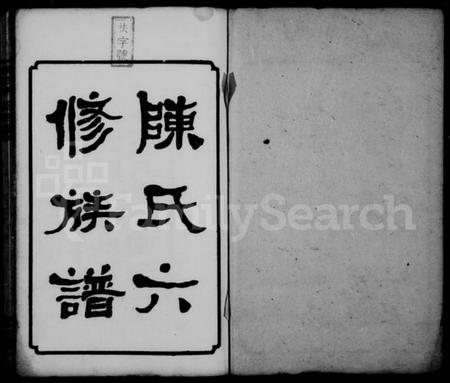 陳氏六
修族譜
扶字號
FamilySearch